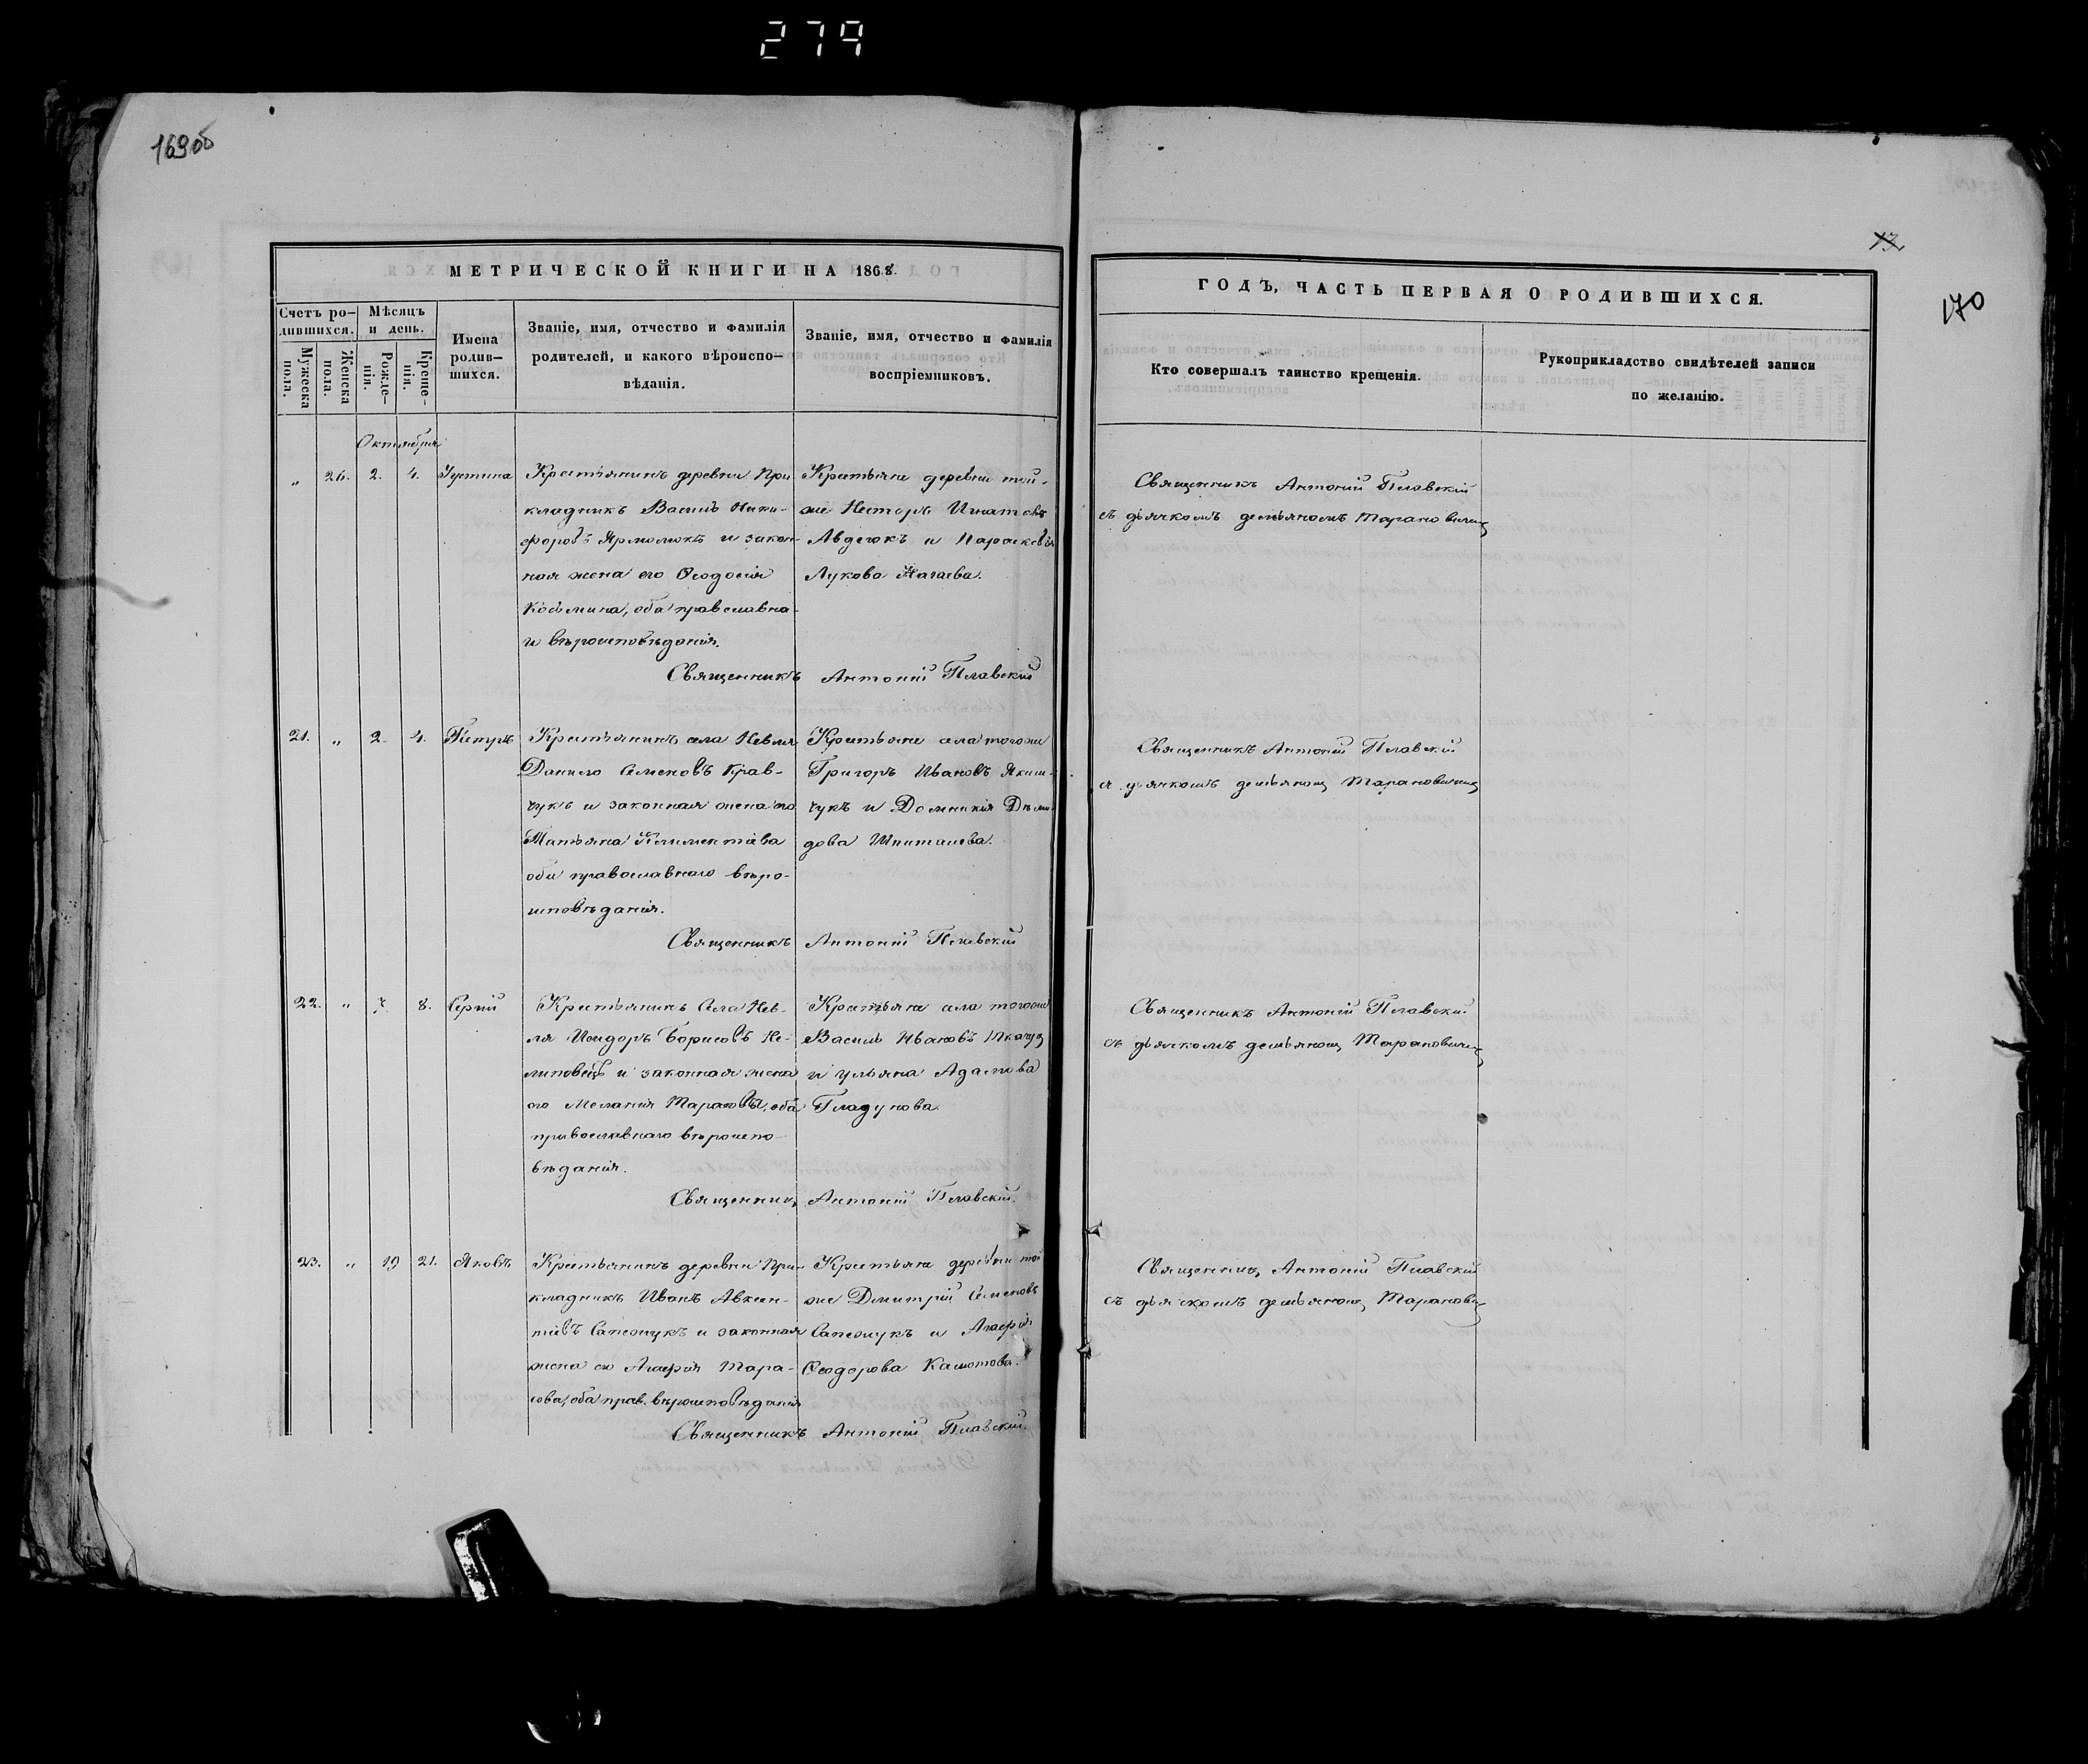 279
169об
13
170
МЕТРИЧЕСКОЙ КНИГИ НА 1868.
ГОДЪ, ЧАСТЬ ПЕРВАЯ О РОДИВШИХСЯ.
Счетъ ро-
дившихся.
Мужеска
пола.
Женска
пола.
Мѣсяцъ
и день.
Рожде-
нія.
Креще-
нія.
Имена
родив-
шихся.
Званіе, имя, отчество и фамилія
родителей, и какого вѣроиспо-
вѣданія.
Званіе, имя, отчество и фамилія
воспріемниковъ.
Кто совершалъ таинство крещенія.
Рукоприкладство свидѣтелей записи
по желанію.
Октября
„ 26. 2. 4. Іустина
Крестьянинъ деревни При
кладникъ Василь Ники-
форовъ Ярмолюкъ и закон-
ная жена его Ѳеодосія
Косьмина, оба православна-
го вѣроисповѣданія.
Крестьяне деревни той-
же Несторъ Игнатовъ
Авдеюкъ и Параскевія
Лукова Нагаева.
Священникъ Антоній Плавскій
Священникъ Антоній Плавскій
съ дьячкомъ Демьяномъ Тарановичемъ
21. „ 2. 4. Петръ
Крестьянинъ села Невля
Данило Семеновъ Крав-
чукъ и законная жена его
Татьяна Климентіева
оба православнаго вѣро-
исповѣданія.
Крестьяне села тогоже
Григоръ Ивановъ
чукъ и Домникія Деми-
дова
Священникъ Антоній Плавскій
Священникъ Антоній Плавскій
съ дьячкомъ Демьяномъ Тарановичемъ
22. „ 7. 8. Сергій
Крестьянинъ Села Нев-
ля Исидоръ Борисовъ Не-
липовецъ и законная жена
его Меланія Тарасова, оба
православнаго вѣроиспо-
вѣданія.
Крестьяне села тогоже
Василь Ивановъ Ткачукъ
и Ульяна Адамова
Гладунова.
Священникъ Антоній Плавскій.
Священникъ Антоній Плавскій
съ дьячкомъ Демьяномъ Тарановичемъ
23. „ 19 21. Яковъ
Крестьянинъ деревни При-
кладникъ Иванъ Авксен-
тіевъ Сапежукъ и законная
жена его Агафія Тара-
сова, оба прав. вѣроисповѣданія
Крестьяне деревни той
же Дмитрій Семеновъ
Сапежукъ и Агафія
Ѳеодорова
Священникъ Антоній Плавскій.
Священникъ Антоній Плавскій
съ дьячкомъ Демьяномъ Тарановичемъ